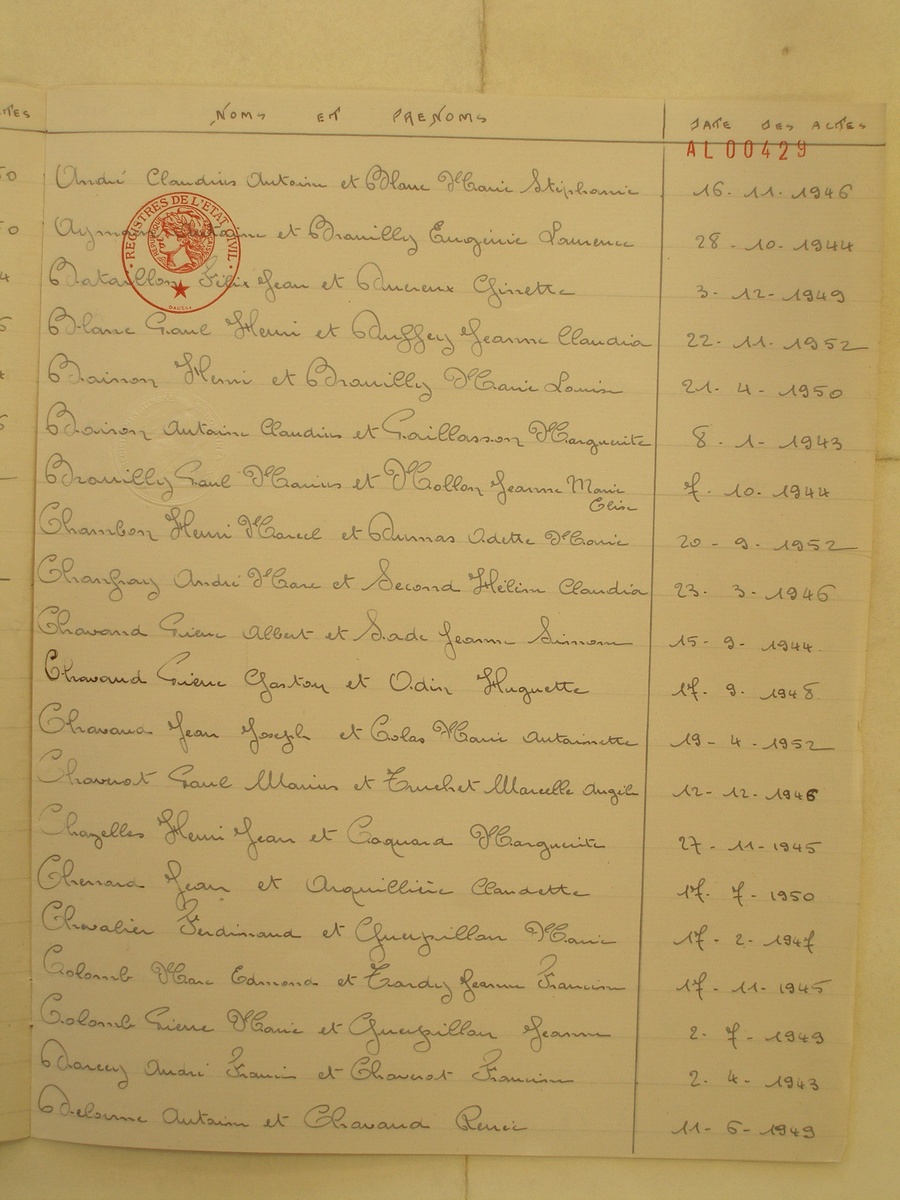 NOMS ET PRENOMS DATE DES ACTES
AL00429
André Claudius Antoine et Blanc Marie Stéphanie 16-11-1946
REGISTRES DE L'ETAT CIVIL
Antoine et Brouilly Eugénie Laurence 28-10-1944
Bataillon Félix Jean et Ducreux Ginette 3-12-1949
Blanc Paul Henri et Duffey Jeanne Claudia 22-11-1952
Boisson Henri et Brouilly Marie Louise 21-4-1950
Boison Antoine Claudius et Gaillasson Marguerite 8-1-1943
Brouilly Paul Marius et Mollon Jeanne Marie 7-10-1944
Elise
Chambon Henri Marcel et Dumas Odette Marie 20-9-1952
André Marc et Second Hélène Claudia 23-3-1946
Chavand Pierre Albert et Sade Jeanne Simone 15-9-1944
Chavand Pierre Gaston et Odin Huguette 17-9-1948
Chavand Jean Joseph et Colas Marie Antoinette 19-4-1952
Chaverot Paul Marius et Truchet Marcelle Angèle 12-12-1946
Chazelles Henri Jean et Coquard Marguerite 27-11-1945
Jean et Arquillière Claudette 17-7-1950
Chevalier Ferdinand et Guerpillon Marie 17-2-1947
Colomb Marc Edmond et Tardy Jeanne Francine 17-11-1945
Colomb Pierre Marie et Guerpillon Jeanne 2-7-1949
André Francis et Chaverot Francine 2-4-1943
Delorme Antoine et Chavand Renée 11-6-1949